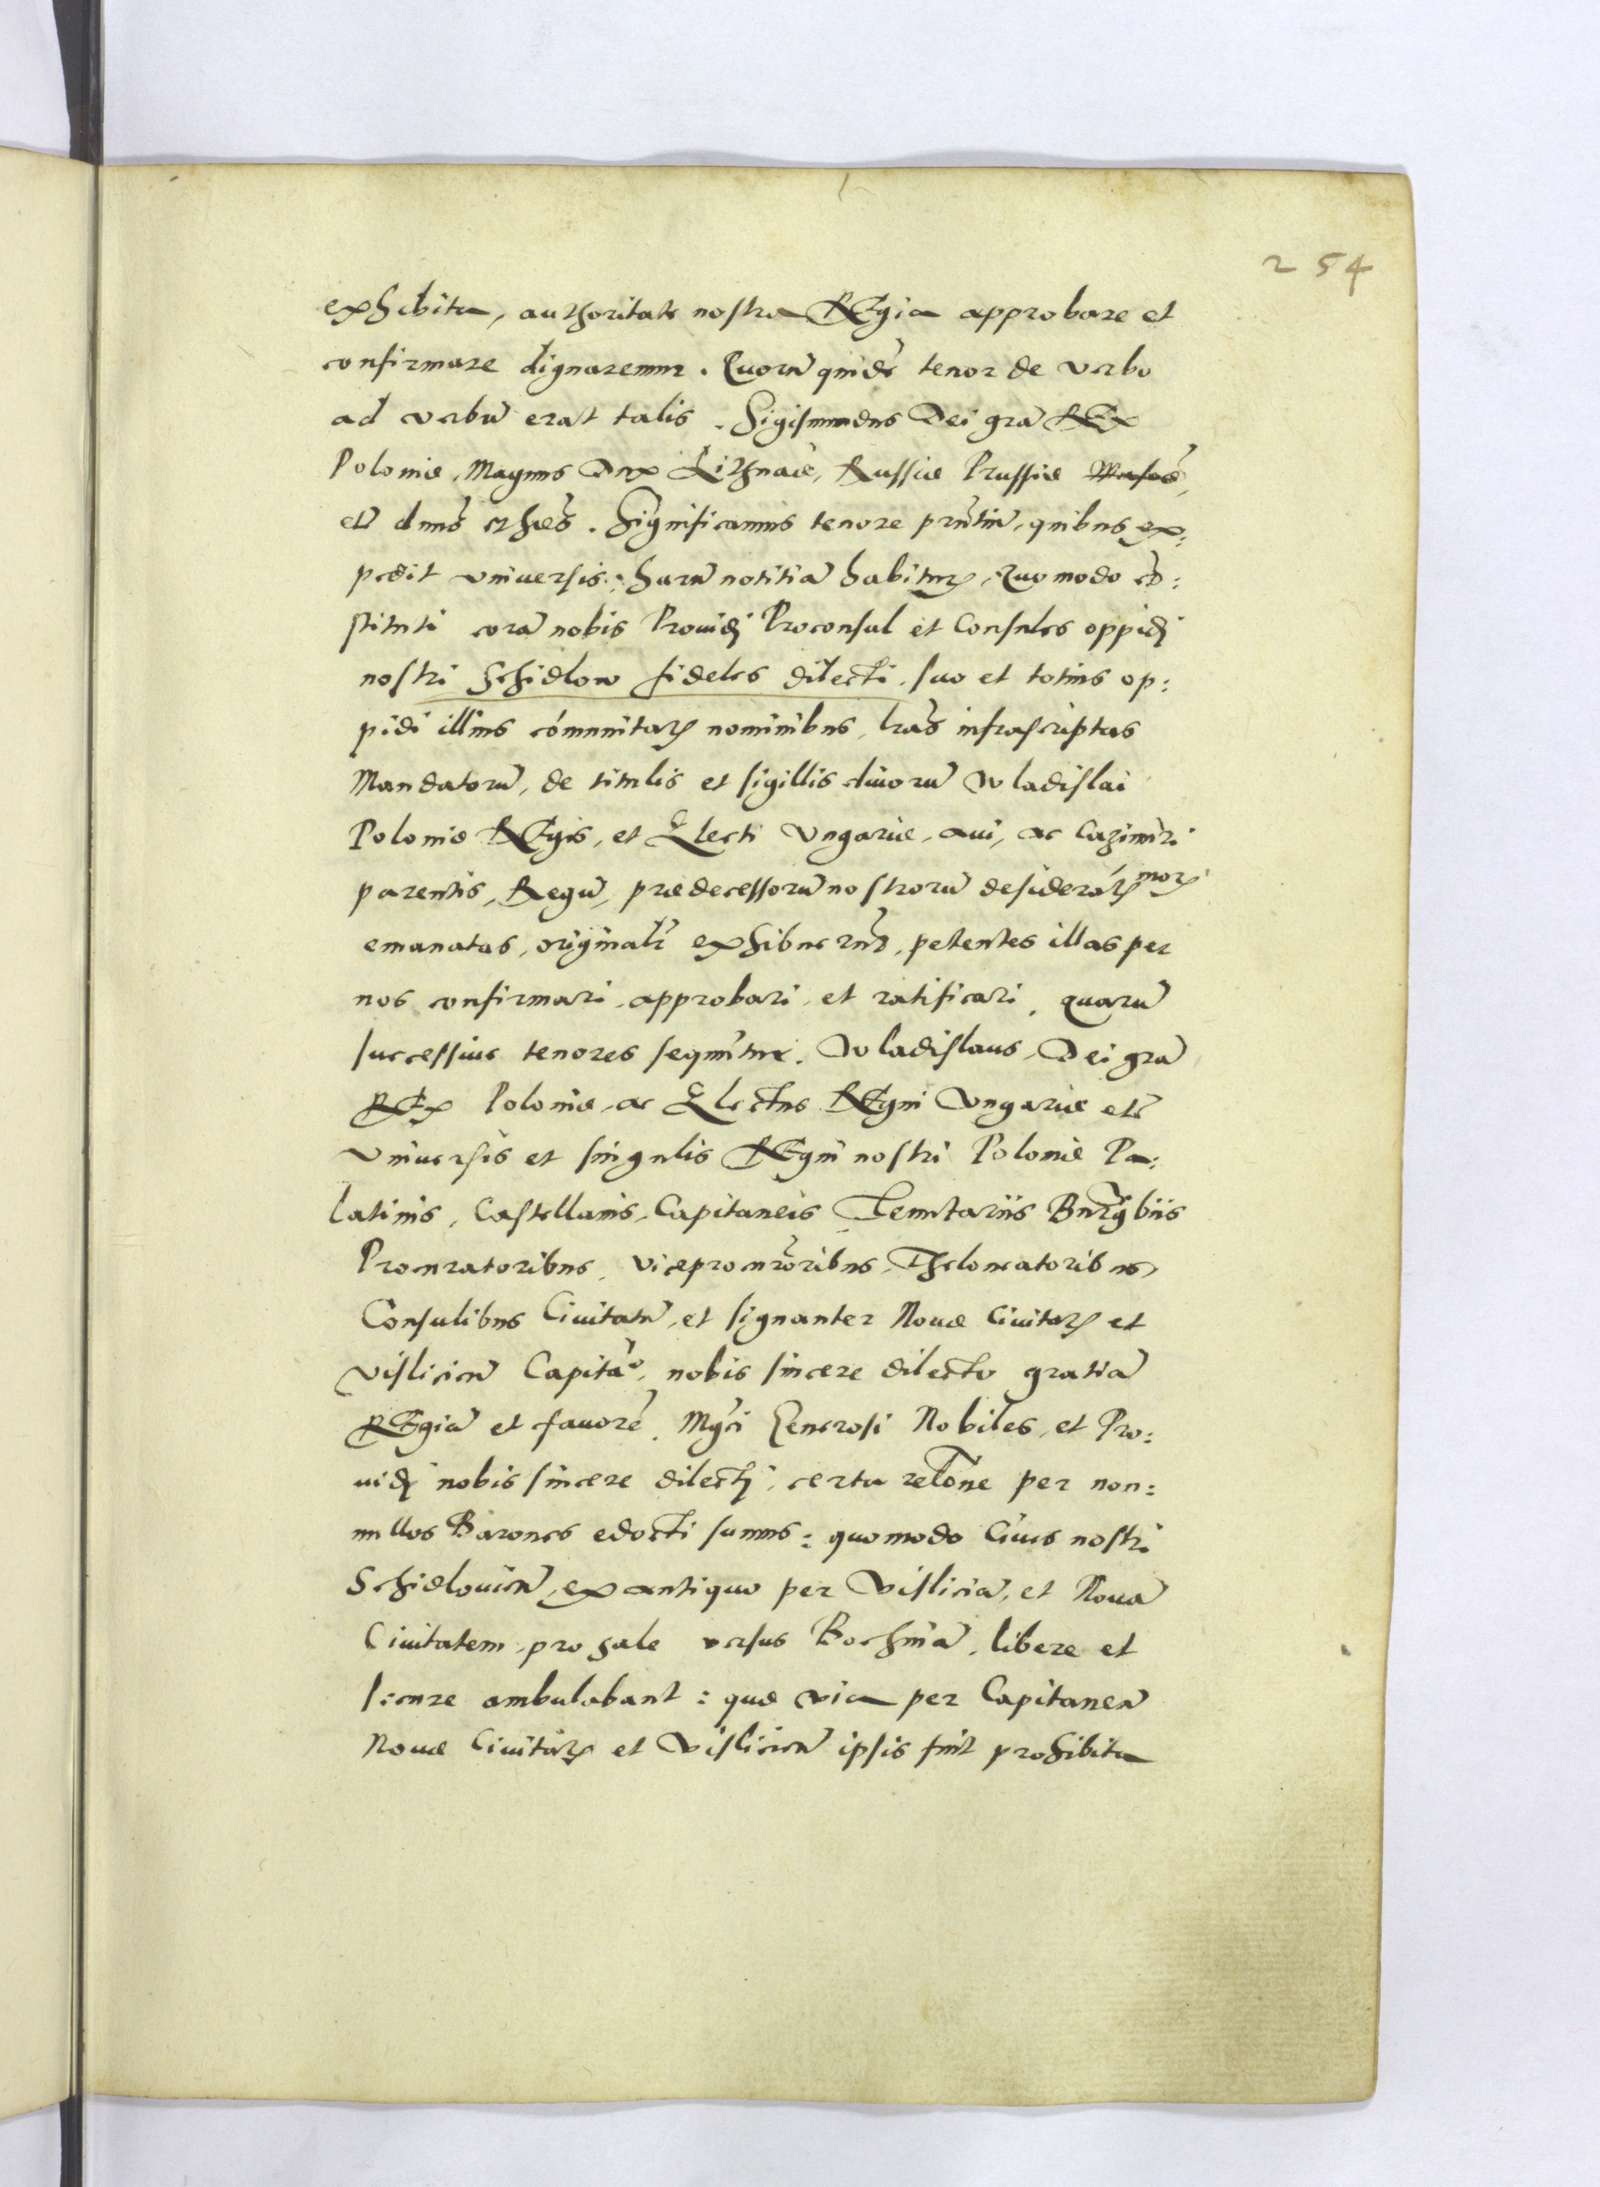 254
exhibita, authoritate nostra REgia approbare et
confirmare dignaremur. Quorũ quidẽ tenor de verbo
ad verbũ erat talis. Sigismundus Dei grã REx
Poloniæ, Magnus Dux Lithuaiæ, Russiæ Prussiæ
etc̃ dnus̃ et hæs̃. Significamus tenore prñtiũ, quibus ex:
pedit vniuersis: harũ notitiã habitur[is], Quomodo cõ:
stituti corã nobis Prouidi Proconsul et Consules oppidi
nostri Schidlow fideles dilecti, suo et totius op:
pidi illius cõmunitatis nominibus, lras̃ infrascriptas
Mandatorũ, de titulis et sigillis diuorũ Wladislai
Poloniæ REgis, et Electi Vngariæ, aui, ac Cazimiri
parentis, Regũ, prædecessorũ nostrorũ desideratis morũ
emanatas, originalr̃ exhibuerũt, petentes illas per
nos confirmari, approbari, et ratificari, quarũ
successiue tenores sequũtur. Wladislaus, Dei grã
REx Poloniæ, ac Electus REgni Vngariæ etc̃
Vniuersis et singulis REgni nostri Poloniæ Pa:
latinis, Castellanis, Capitaneis Tenutariis Burg̃biis
Procuratoribus, viceprocurõribus, Theloneatoribus,
Consulibus Ciuitatũ, et signanter Nouæ Ciuitatis et
Visliciẽn Capitãº, nobis sincere dilecto gratiã
REgiã et fauorẽ. Mg̃ci Generosi Nobiles, et Pro:
uidi nobis sincere dilecti, certa relõne per non:
nullos Barones edocti sumus: quomodo Ciues nostri
Schidlouiẽn, ex antiquo per Visliciã, et Nouã
Ciuitatem, pro sale versus Bochniã, libere et
secure ambulabant: quæ via per Capitaneũ
Nouæ Ciuitatis et Visliciẽn ipsis fuit prohibita